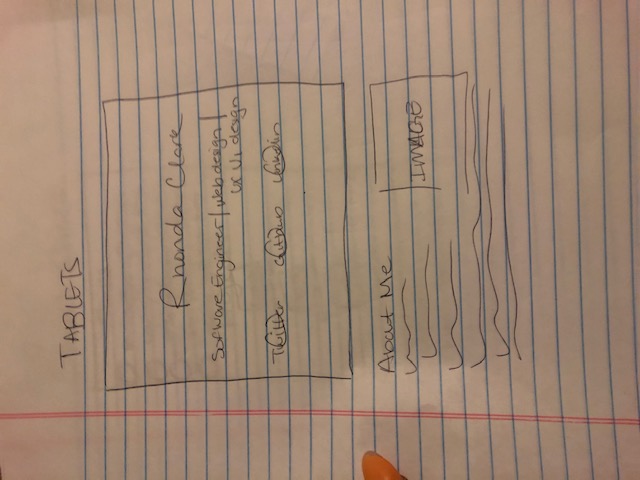 TABLETS
Rhonda Clark
Software Engineer | web design |
ux ui design
Twitter Github linkedin
About Me
IMAGE